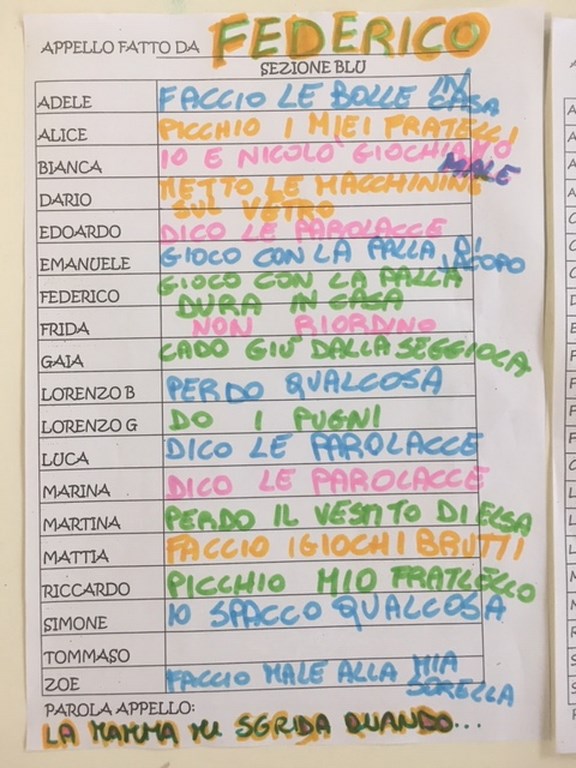 APPELLO FATTO DA FEDERICO
SEZIONE BLU
ADELE FACCIO LE BOLLE IN CASA
ALICE PICCHIO I MIEI FRATELLI
BIANCA IO E NICOLO' GIOCHIAMO MALE
DARIO METTO LE MACCHININE SUL VETRO
EDOARDO DICO LE PAROLACCE
EMANUELE GIOCO CON LA PALLA DI JACOPO
FEDERICO GIOCO CON LA PALLA DURA IN CASA
FRIDA NON RIORDINO
GAIA CADO GIU' DALLA SEGGIOLA
LORENZO B PERDO QUALCOSA
LORENZO G DO I PUGNI
LUCA DICO LE PAROLACCE
MARINA DICO LE PAROLACCE
MARTINA PERDO IL VESTITO DI ELSA
MATTIA FACCIO I GIOCHI BRUTTI
RICCARDO PICCHIO MIO FRATELLO
SIMONE IO SPACCO QUALCOSA
TOMMASO
ZOE FACCIO MALE ALLA MIA SORELLA
PAROLA APPELLO:
LA MAMMA MI SGRIDA QUANDO...